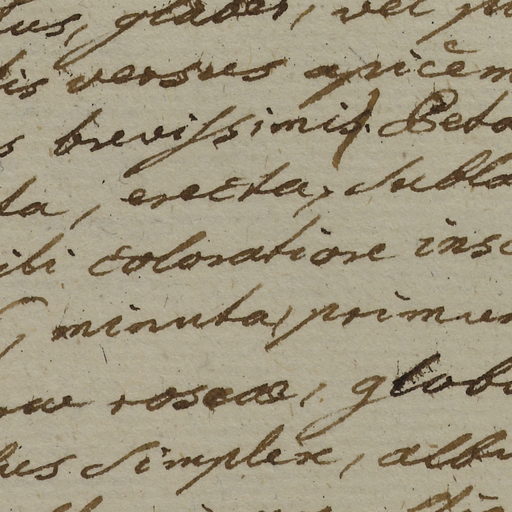 lus, glaber, vel pi
lis versus apicem
s brevissimis). Peta
ta, erecta, subla
ibi coloratiore insc
minuta, primum
roseae, globo
bus simplex, albu